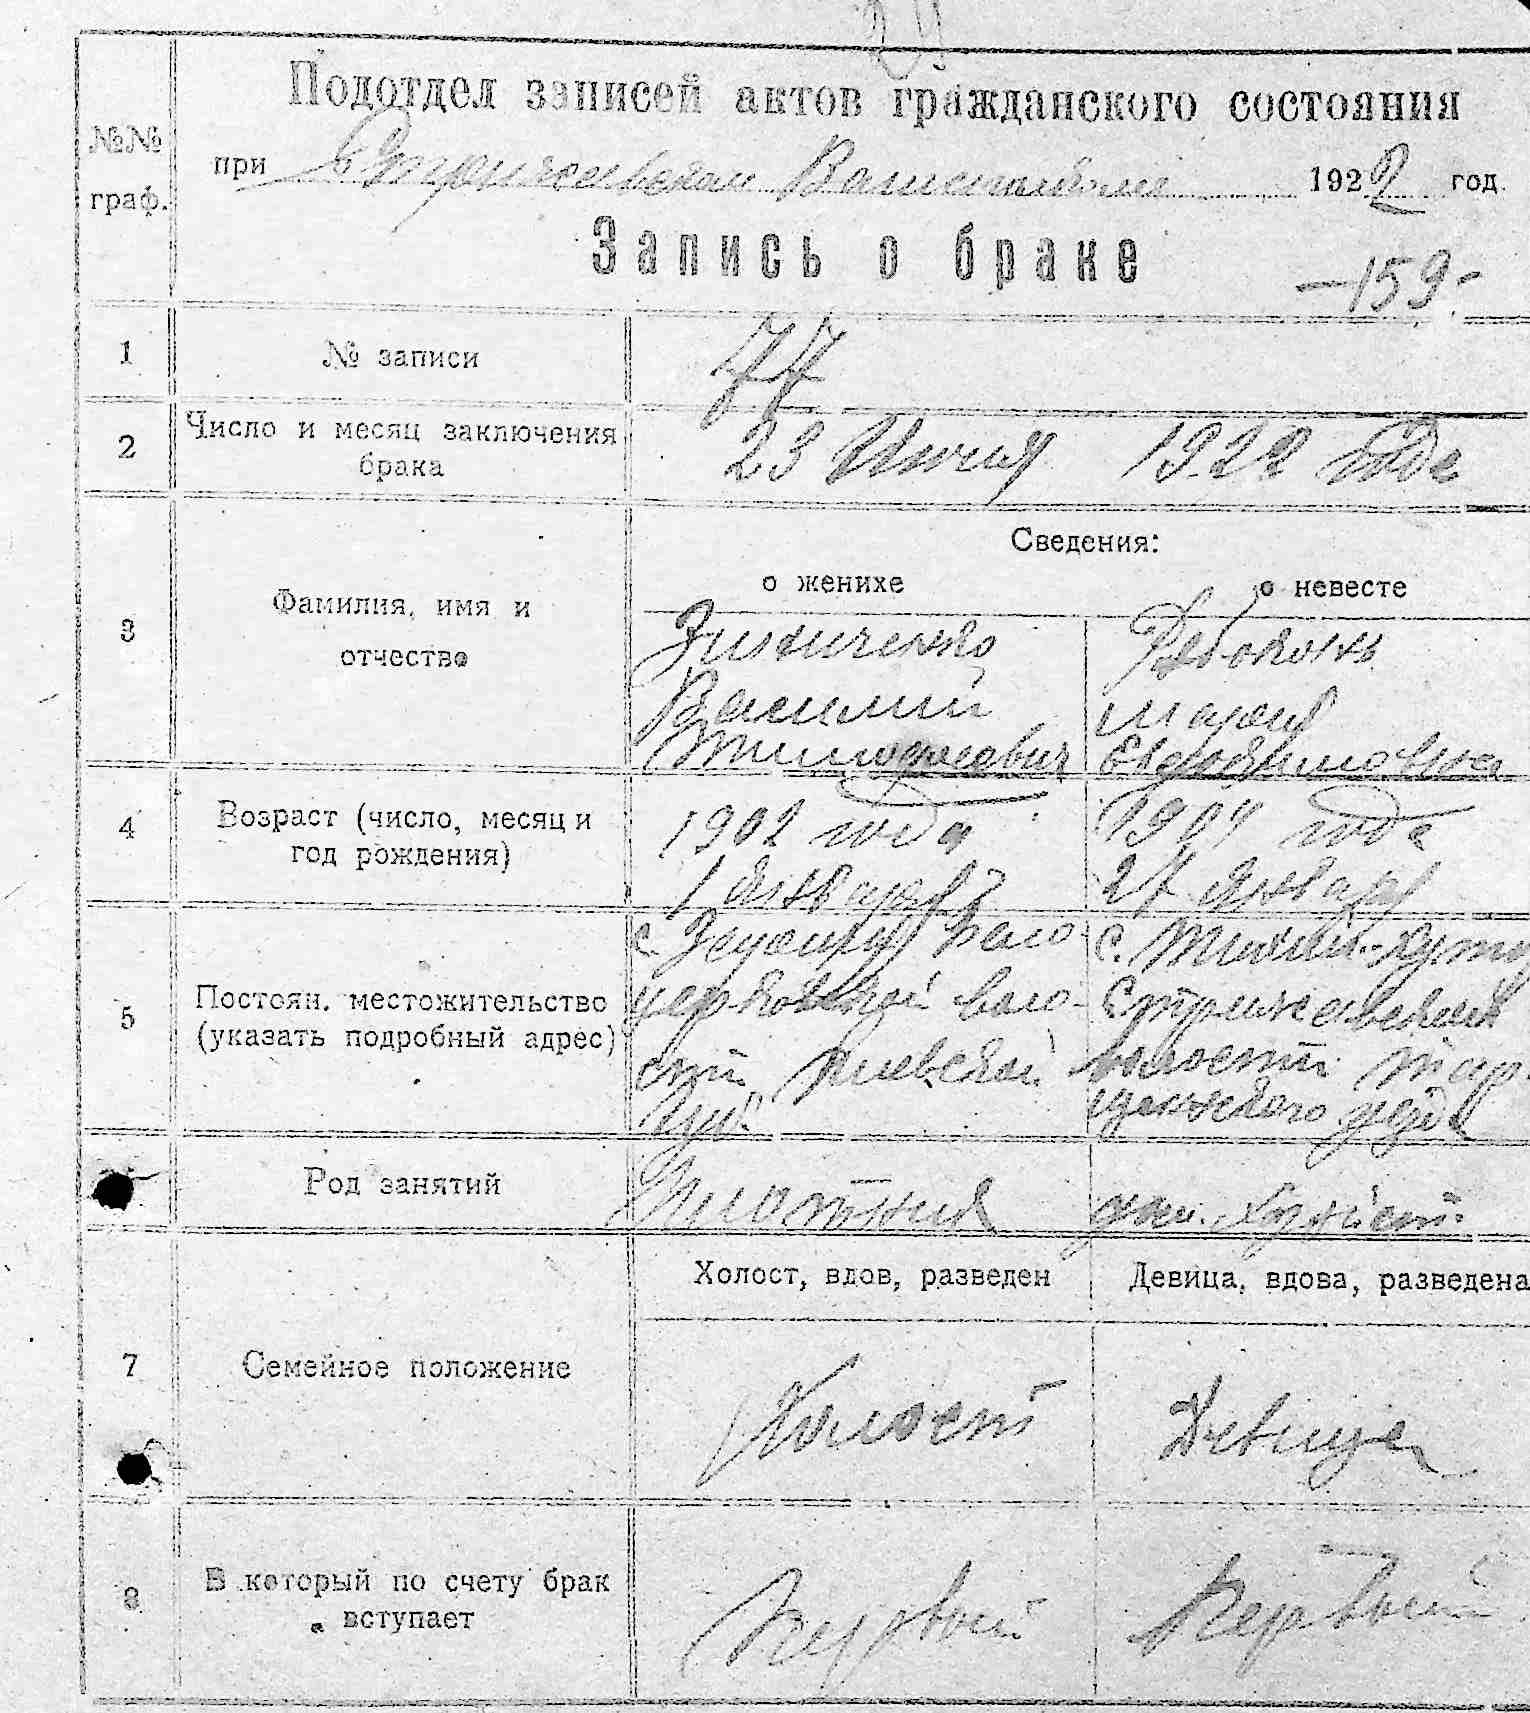 24
Подотдел записей актов гражданского состояния
№№ граф.
при Стрижевской 1922 год.
Запись о браке
-159-
1 № записи 77
2 Число и месяц заключения брака 23 Июня 1922 года
Сведения:
о женихе о невесте
3 Фамилия, имя и отчество
Василий Мария
Тимофеевич Евдокимовна
4 Возраст (число, месяц и год рождения)
1902 года 1904 года
1 января 27 января
5 Постоян. местожительство (указать подробный адрес)
с. Бело- с. Тихий-Хутор
церковской воло- Стрижевской
сти Киевской волости Тар-
губ. щанского уезда
Род занятий Плотник дом.
Холост, вдов, разведен Девица, вдова, разведена
7 Семейное положение Холост Девица
8 В который по счету брак вступает Первый Первый